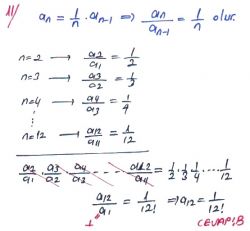 11/ aₙ = 1/n · aₙ₋₁ ⇒ aₙ/aₙ₋₁ = 1/n olur.
n=2 → a₂/a₁ = 1/2
n=3 → a₃/a₂ = 1/3
n=4 → a₄/a₃ = 1/4
⋮
n=12 → a₁₂/a₁₁ = 1/12
a₂/a₁ · a₃/a₂ · a₄/a₃ ····· a₁₂/a₁₁ = 1/2 · 1/3 · 1/4 ····· 1/12
a₁₂/a₁ = 1/12! ⇒ a₁₂ = 1/12!
1
CEVAP: B